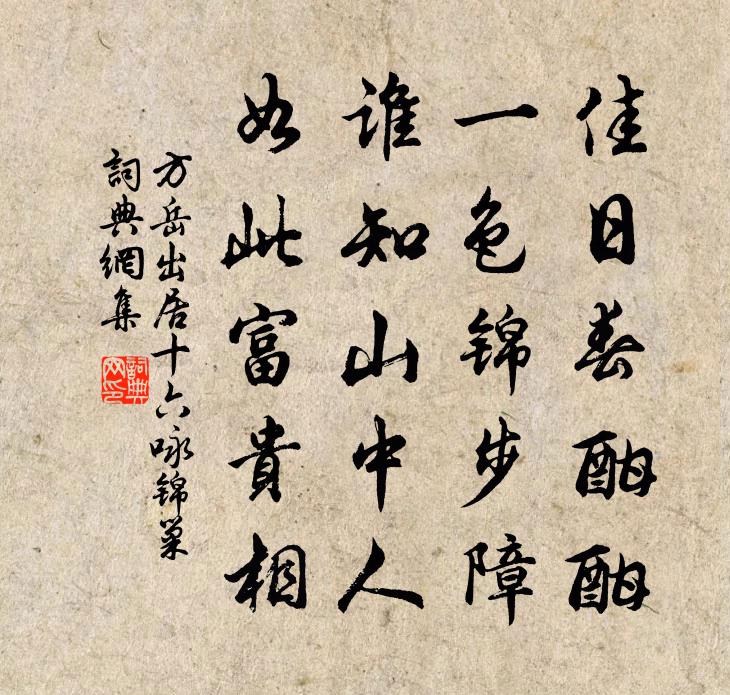 佳日春酣酣
一色锦步障
谁知山中人
如此富貴相
方岳出居十六咏锦巢
詞典網集
詞典网印